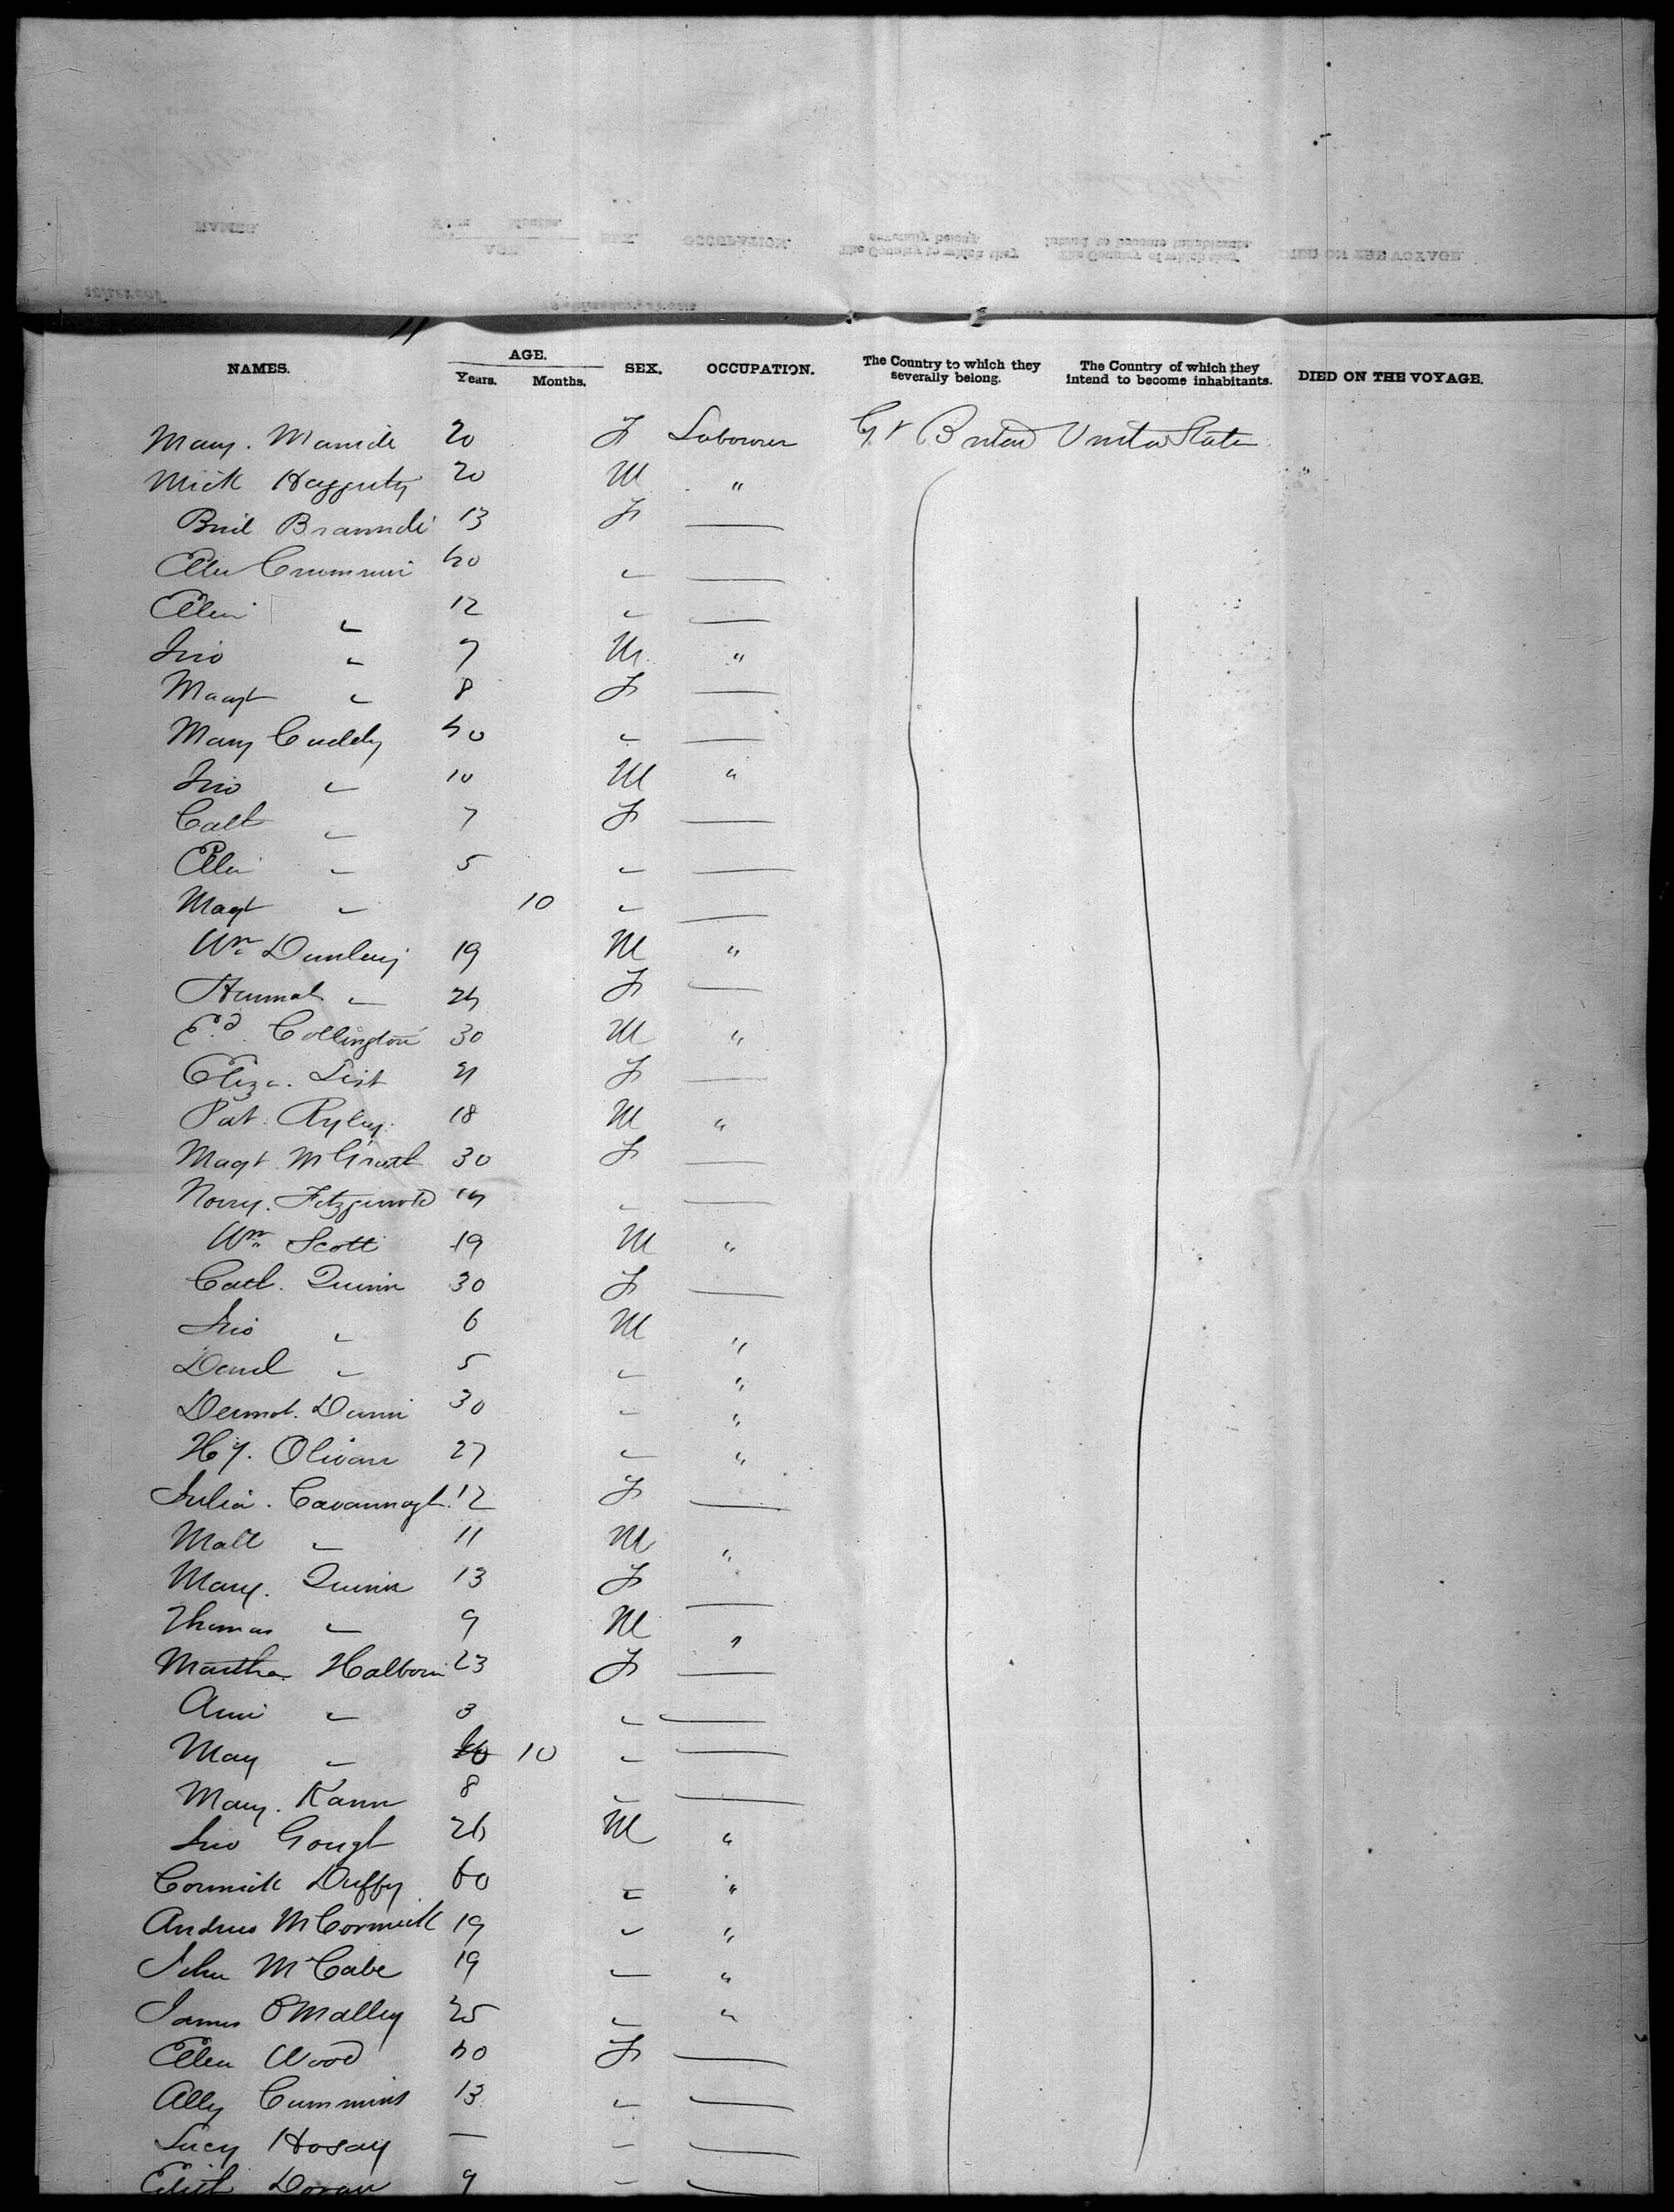 NAMES. AGE. Years. Months. SEX. OCCUPATION. The Country to which they severally belong. The Country of which they intend to become inhabitants. DIED ON THE VOYAGE.
Mary. 20 F Labourer Gt Britain United States
Mick Haggerty 20 M "
13 F —
Ellen 40 " —
Ellen " 12 " —
Jno " 7 M "
Maagt " 8 F —
Mary Cuddy 40 " —
Jno " 10 M "
Cath " 7 F —
Ellen " 5 " —
Magt " 10 " —
Wm Dunlevy 19 M "
Hannah " 24 F —
Ed. Collington 30 M "
Eliza. List 21 F —
Pat. Ryley. 18 M "
Magt. McGrath 30 F —
Fitzgerald " —
Wm Scott 19 M "
Cath. Quinn 30 F —
Jno " 6 M "
" 5 " "
Dermot. Dunn 30 " "
Hy. 27 " "
Julia. Cavannagh. 12 F —
Matt " 11 M "
Mary. Quinn 13 F —
Thomas " 9 M "
Martha Halborn 23 F —
Ann " 3 " —
May " 10 " —
Mary. Kann 8 " —
Jno Gough 26 M "
Cormick Duffy 60 " "
Andrew McCormick 19 " "
John McCabe 19 " "
James O'Malley 25 " "
Ellen Wood 40 F —
Ally Cummins 13 " —
Lucy Hosay — " —
Edith Doran 9 " —